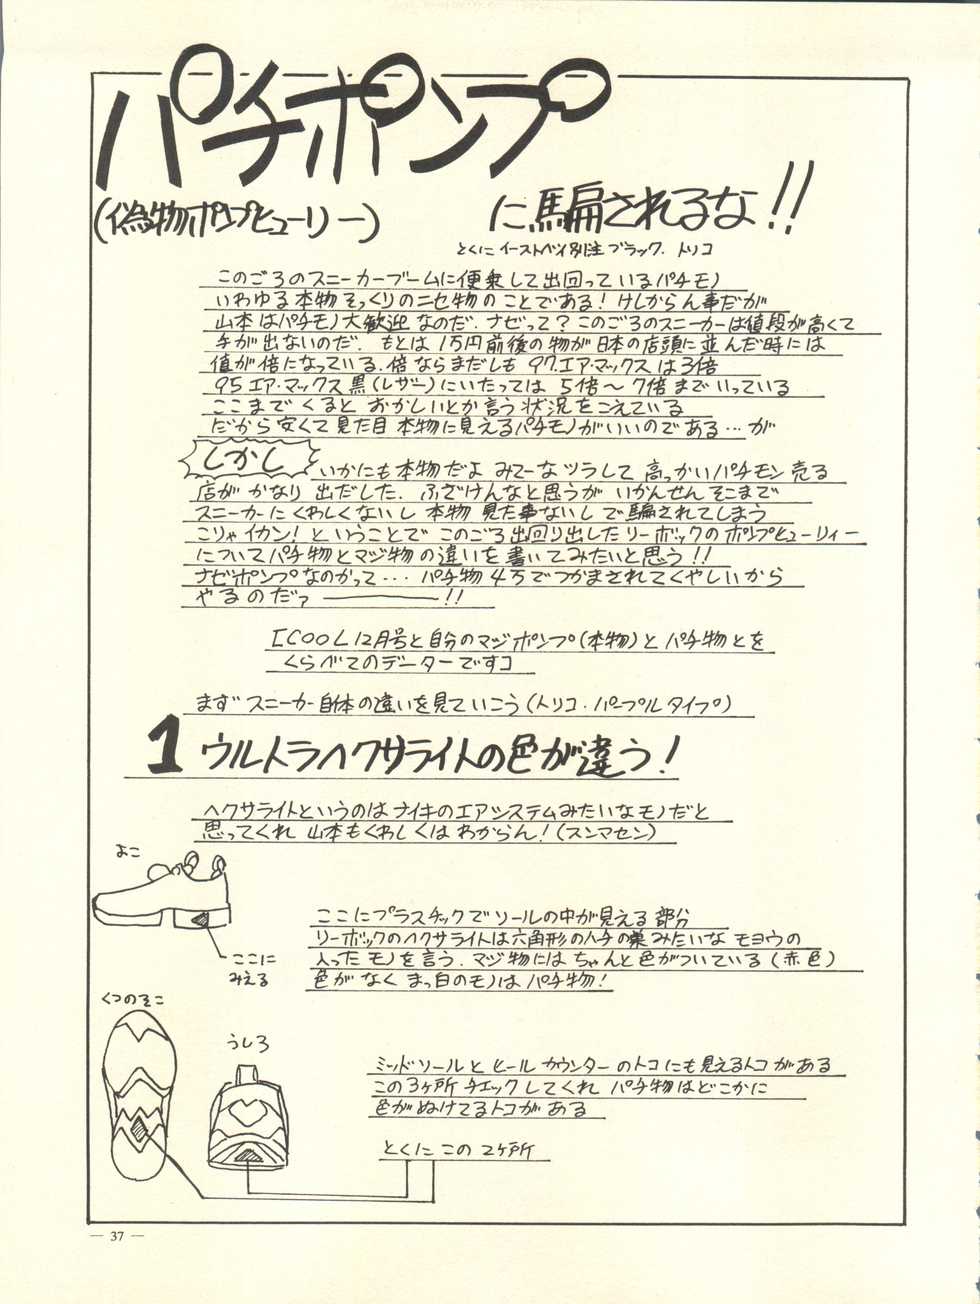 パチポンプ
(偽物ポンプヒューリー)
に騙されるな!!
とくに イーストベイ別注 ブラック. トリコ
このごろのスニーカーブームに便乗して出回っているパチモノ
いわゆる本物そっくりのニセ物のことである! けしからん事だが
山本はパチモノ大歓迎なのだ. ナゼって? このごろのスニーカーは値段が高くて
手が出ないのだ. もとは1万円前後の物が日本の店頭に並んだ時には
値が倍になっている. 倍ならまだしも 97.エア・マックスは3倍
95エア・マックス黒(レザー)にいたっては 5倍〜7倍までいっている
ここまでくると おかしいとか言う状況をこえている
だから安くて見た目 本物に見えるパチモノがいいのである…が
しかし
いかにも本物だよ みてーなツラして 高っかいパチモン売る
店が かなり 出だした. ふざけんなと思うが いかんせんそこまで
スニーカーにくわしくないし 本物 見た事ないしで騙されてしまう
こりゃイカン! ということで このごろ出回り出したリーボックのポンプヒューリィー
についてパチ物とマジ物の違いを書いてみたいと思う!!
ナゼポンプなのかって… パチ物 4万でつかまされてくやしいから
やるのだァ ――――!!
[COOL12月号と自分のマジポンプ(本物)とパチ物とを
くらべてのデーターですコ
まず スニーカー自体の違いを見ていこう(トリコ・パープルタイプ)
1 ウルトラヘクサライトの色が違う!
ヘクサライトというのはナイキのエアシステムみたいなモノだと
思ってくれ 山本もくわしくはわからん!(スンマセン)
よこ
ここに
みえる
ここにプラスチックでソールの中が見える部分
リーボックのヘクサライトは六角形のハチの巣みたいな モヨウの
入ったモノを言う. マジ物には ちゃんと色がついている(赤色)
色がなく まっ白のモノは パチ物!
くつのそこ
うしろ
ミッドソールと ヒールカウンターのトコにも見えるトコがある
この3ヶ所チェックしてくれ パチ物はどこかに
色がぬけてるトコがある
とくに この 2ヶ所
— 37 —